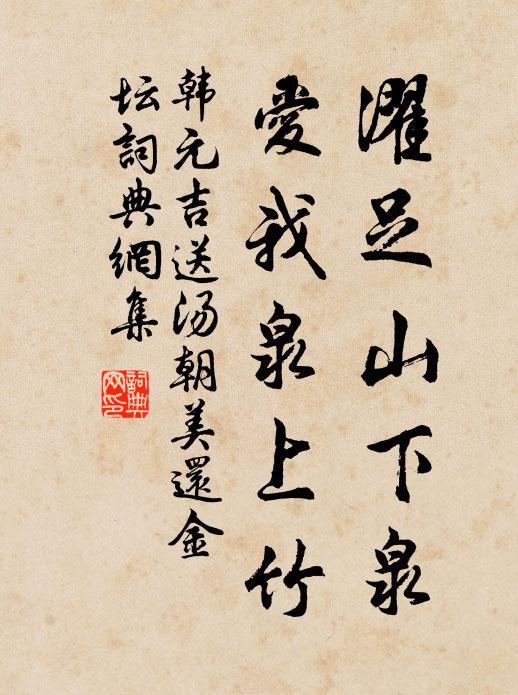 濯足山下泉
愛我泉上竹
韩元吉送汤朝美還金
坛詞典網集
詞典
网印